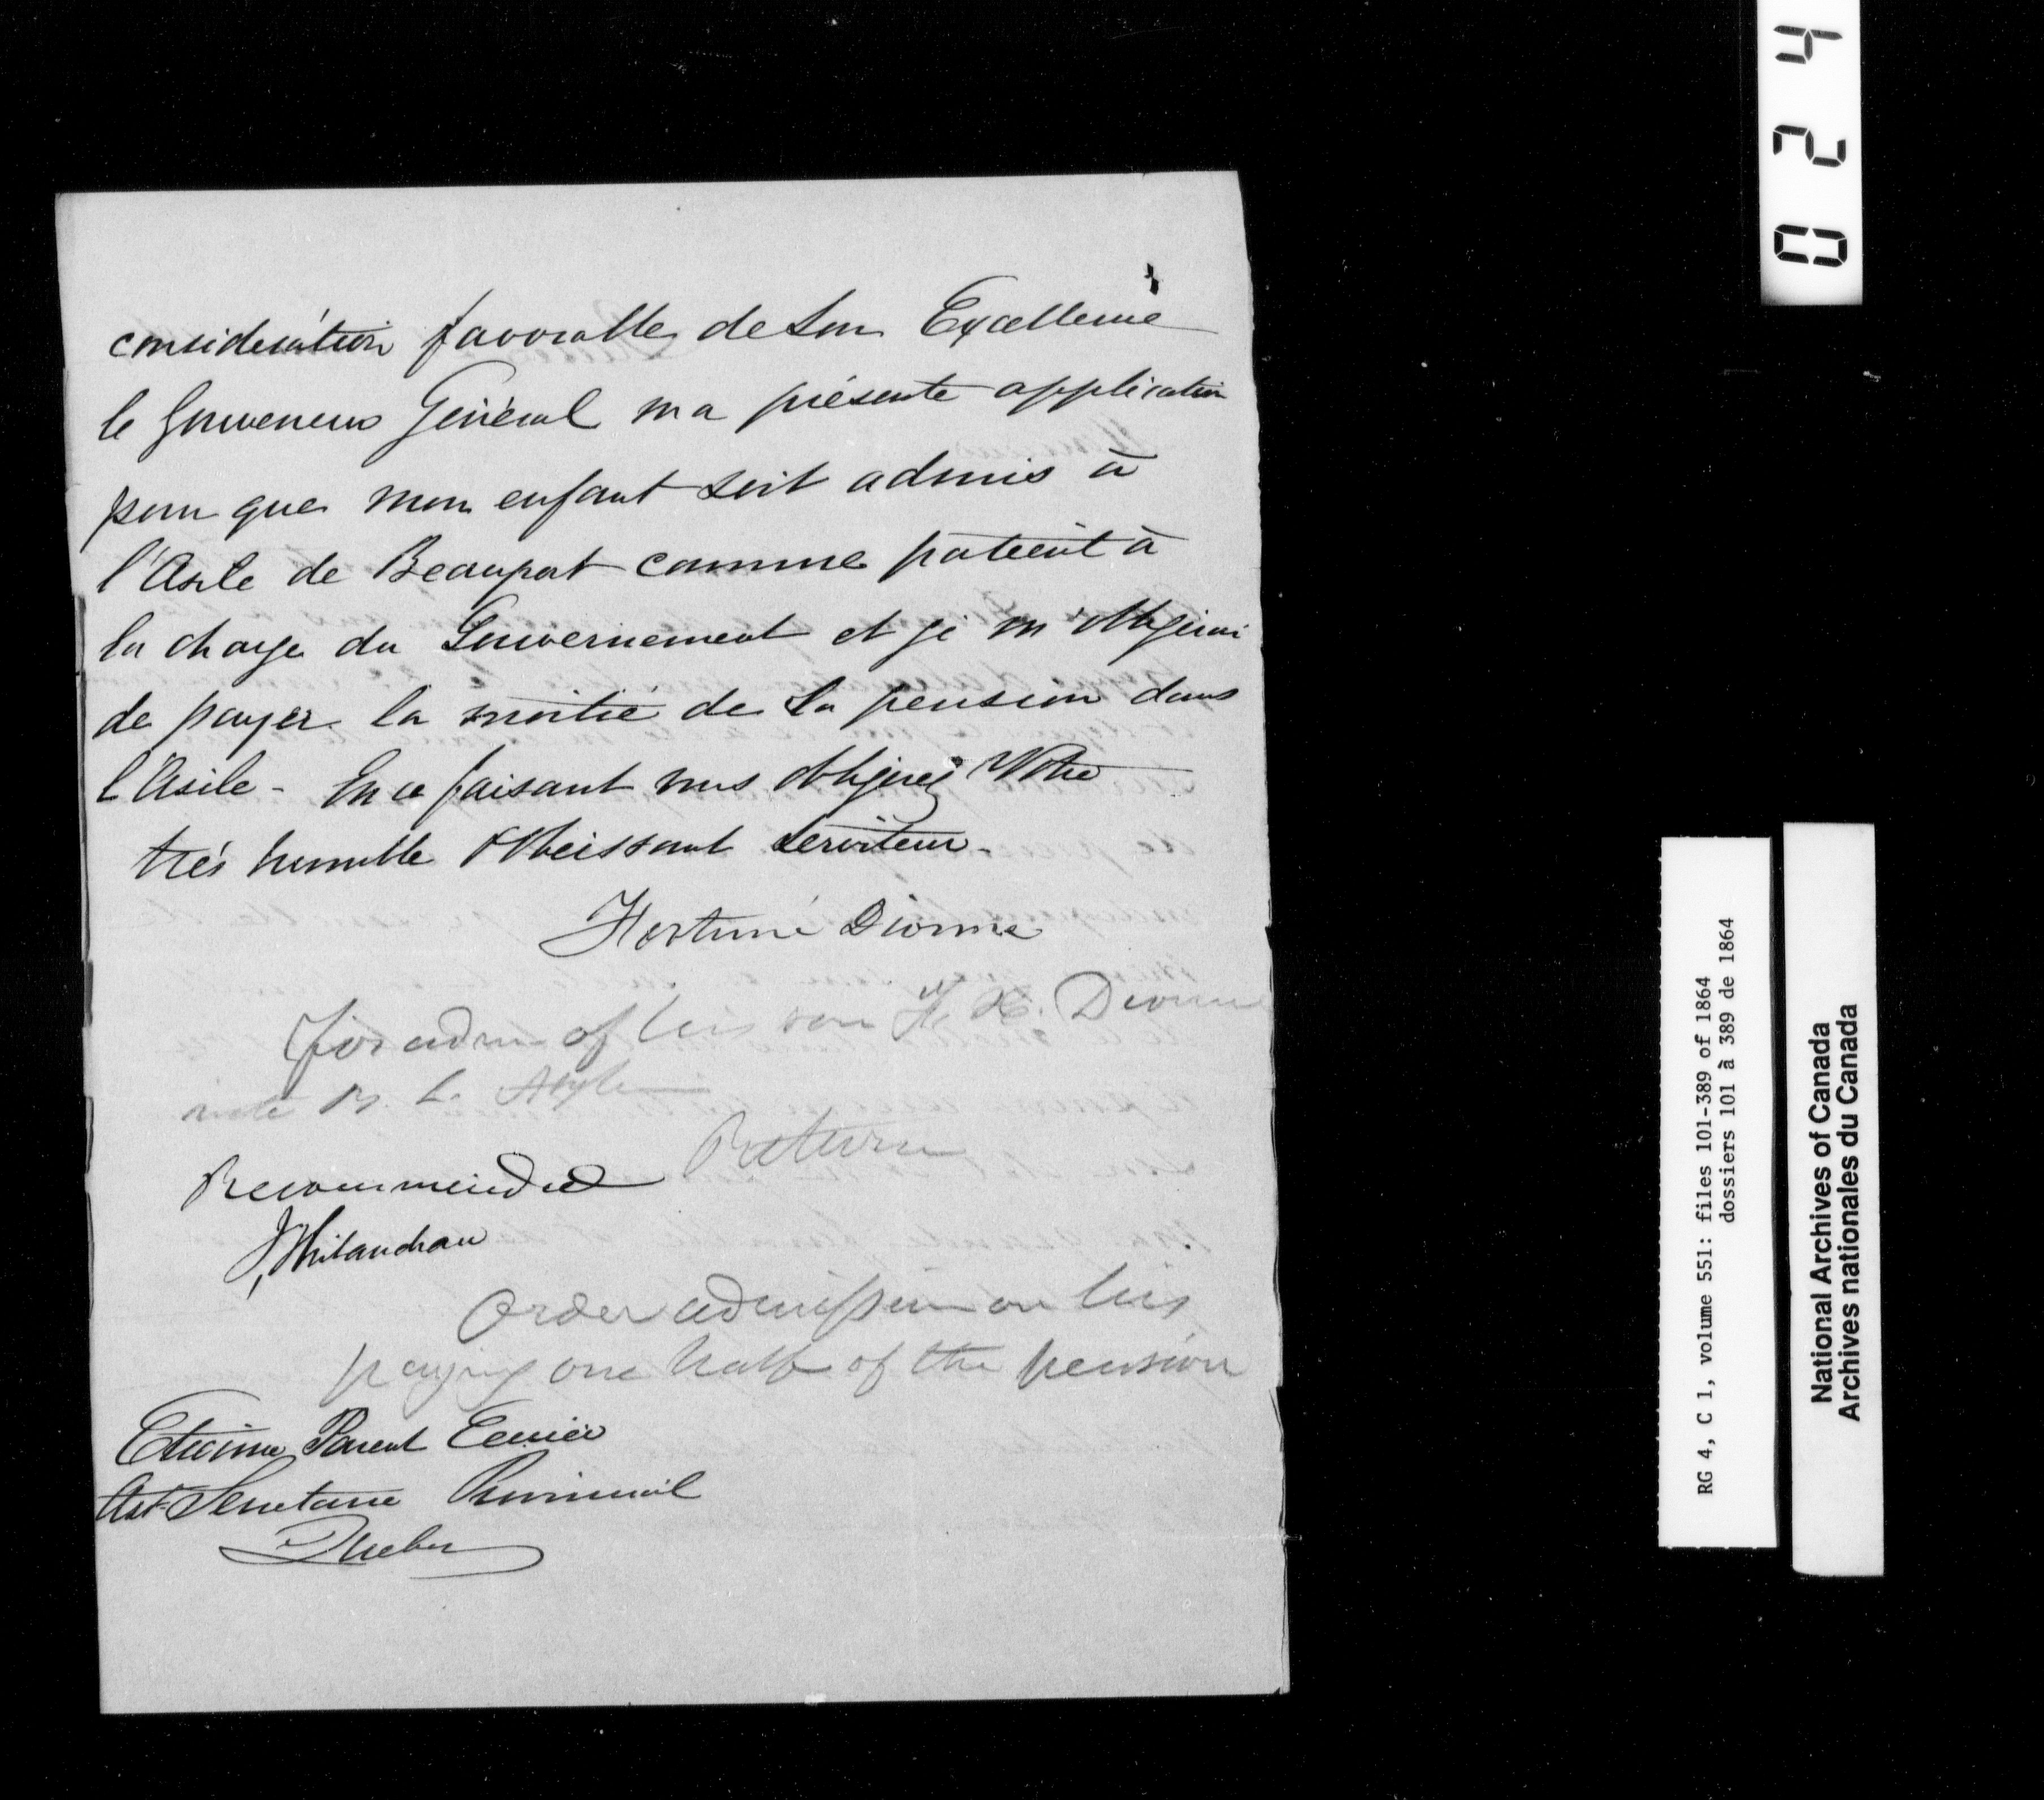 considération favorable de Son Excellence
le Gouverneur Général ma présente application
pour que mon enfant soit admis à
l'Asile de Beauport comme patient à
la charge du Gouvernement et je m'obligerai
de payer la moitié de sa pension dans
l'Asile - En ce faisant vous obligerez Votre
très humble Obéissant Serviteur.
Fortuné Dionne
for adm of his son F. H. Dionne
into B. L. Asylum
Return
Recommended
Order admission on his
paying one half of the pension
Etienne Parent Ecuier
Ast Secretaire Provincial
Quebec
024
RG 4, C 1, volume 551: files 101-389 of 1864
dossiers 101 à 389 de 1864
National Archives of Canada
Archives nationales du Canada